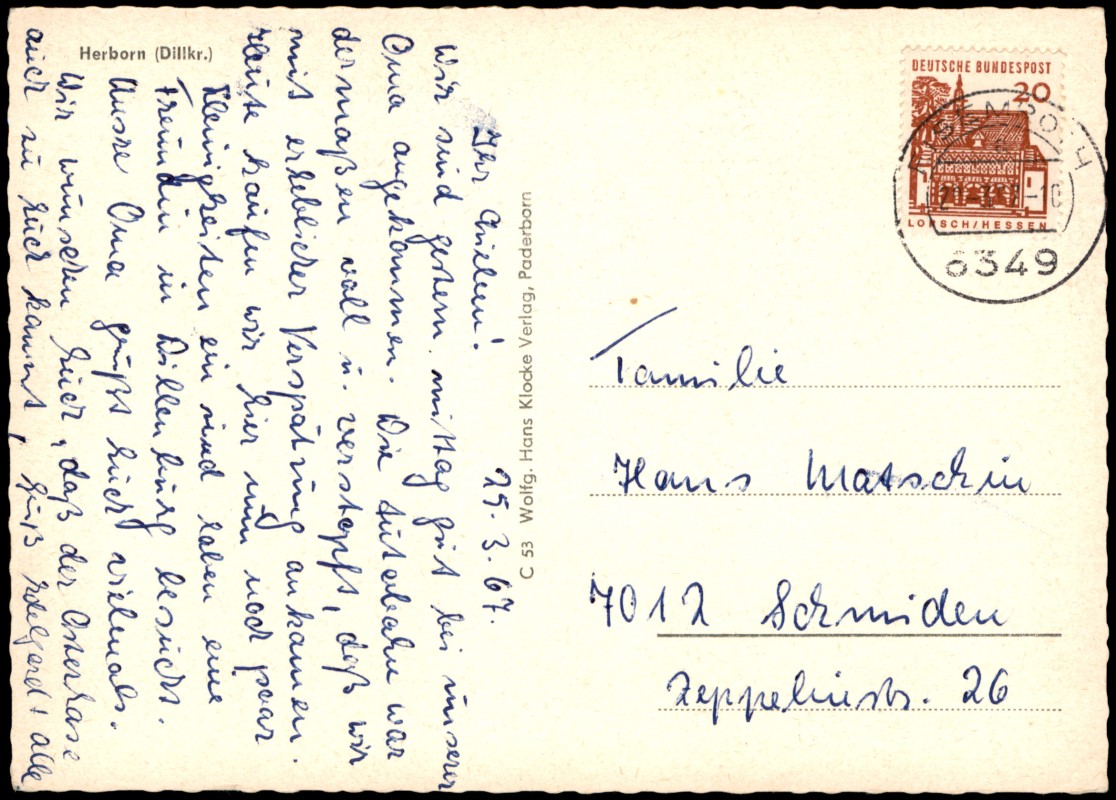 Herborn (Dillkr.)
25. 3. 67.
Ihr Lieben!
Wir sind gestern mittag gut bei unserer
Oma angekommen. Die Autobahn war
dermaßen voll u. verstopft, daß wir
mit erheblicher Verspätung ankamen.
Heute kaufen wir hier nun noch paar
Kleinigkeiten ein und haben eine
Freundin in Dillenburg besucht.
Unsre Oma grüßt Euch vielmals.
Wir wünschen Euch, daß der Osterhase
auch zu Euch kommt, Gruß & alle
C 53 Wolfg. Hans Klocke Verlag, Paderborn
DEUTSCHE BUNDESPOST
20
LORSCH/HESSEN
6349
Familie
Hans Matschin
7012 Schmiden
Zeppelinstr. 26